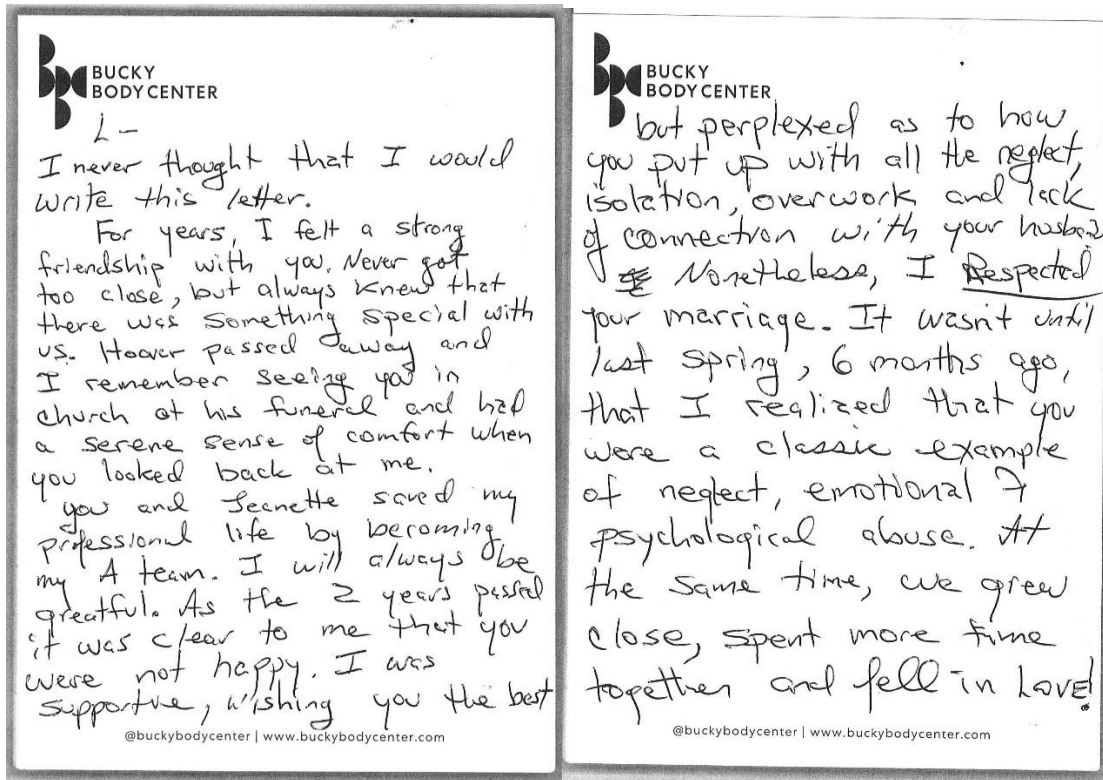 BUCKY
BODY CENTER
L-
I never thought that I would
write this letter.
For years, I felt a strong
friendship with you. Never got
too close, but always knew that
there was something special with
us. Hoover passed away and
I remember seeing you in
church at his funeral and had
a serene sense of comfort when
you looked back at me.
You and Jeanette saved my
professional life by becoming
my A team. I will always be
greatful. As the 2 years passed
it was clear to me that you
were not happy. I was
supportive, wishing you the best
@buckybodycenter | www.buckybodycenter.com
BUCKY
BODY CENTER
but perplexed as to how
you put up with all the neglect,
isolation, overwork and lack
of connection with your
Nonetheless, I Respected
your marriage. It wasn't until
last spring, 6 months ago,
that I realized that you
were a classic example
of neglect, emotional &
psychological abuse. At
the same time, we grew
close, spent more time
together and fell in Love!
@buckybodycenter | www.buckybodycenter.com